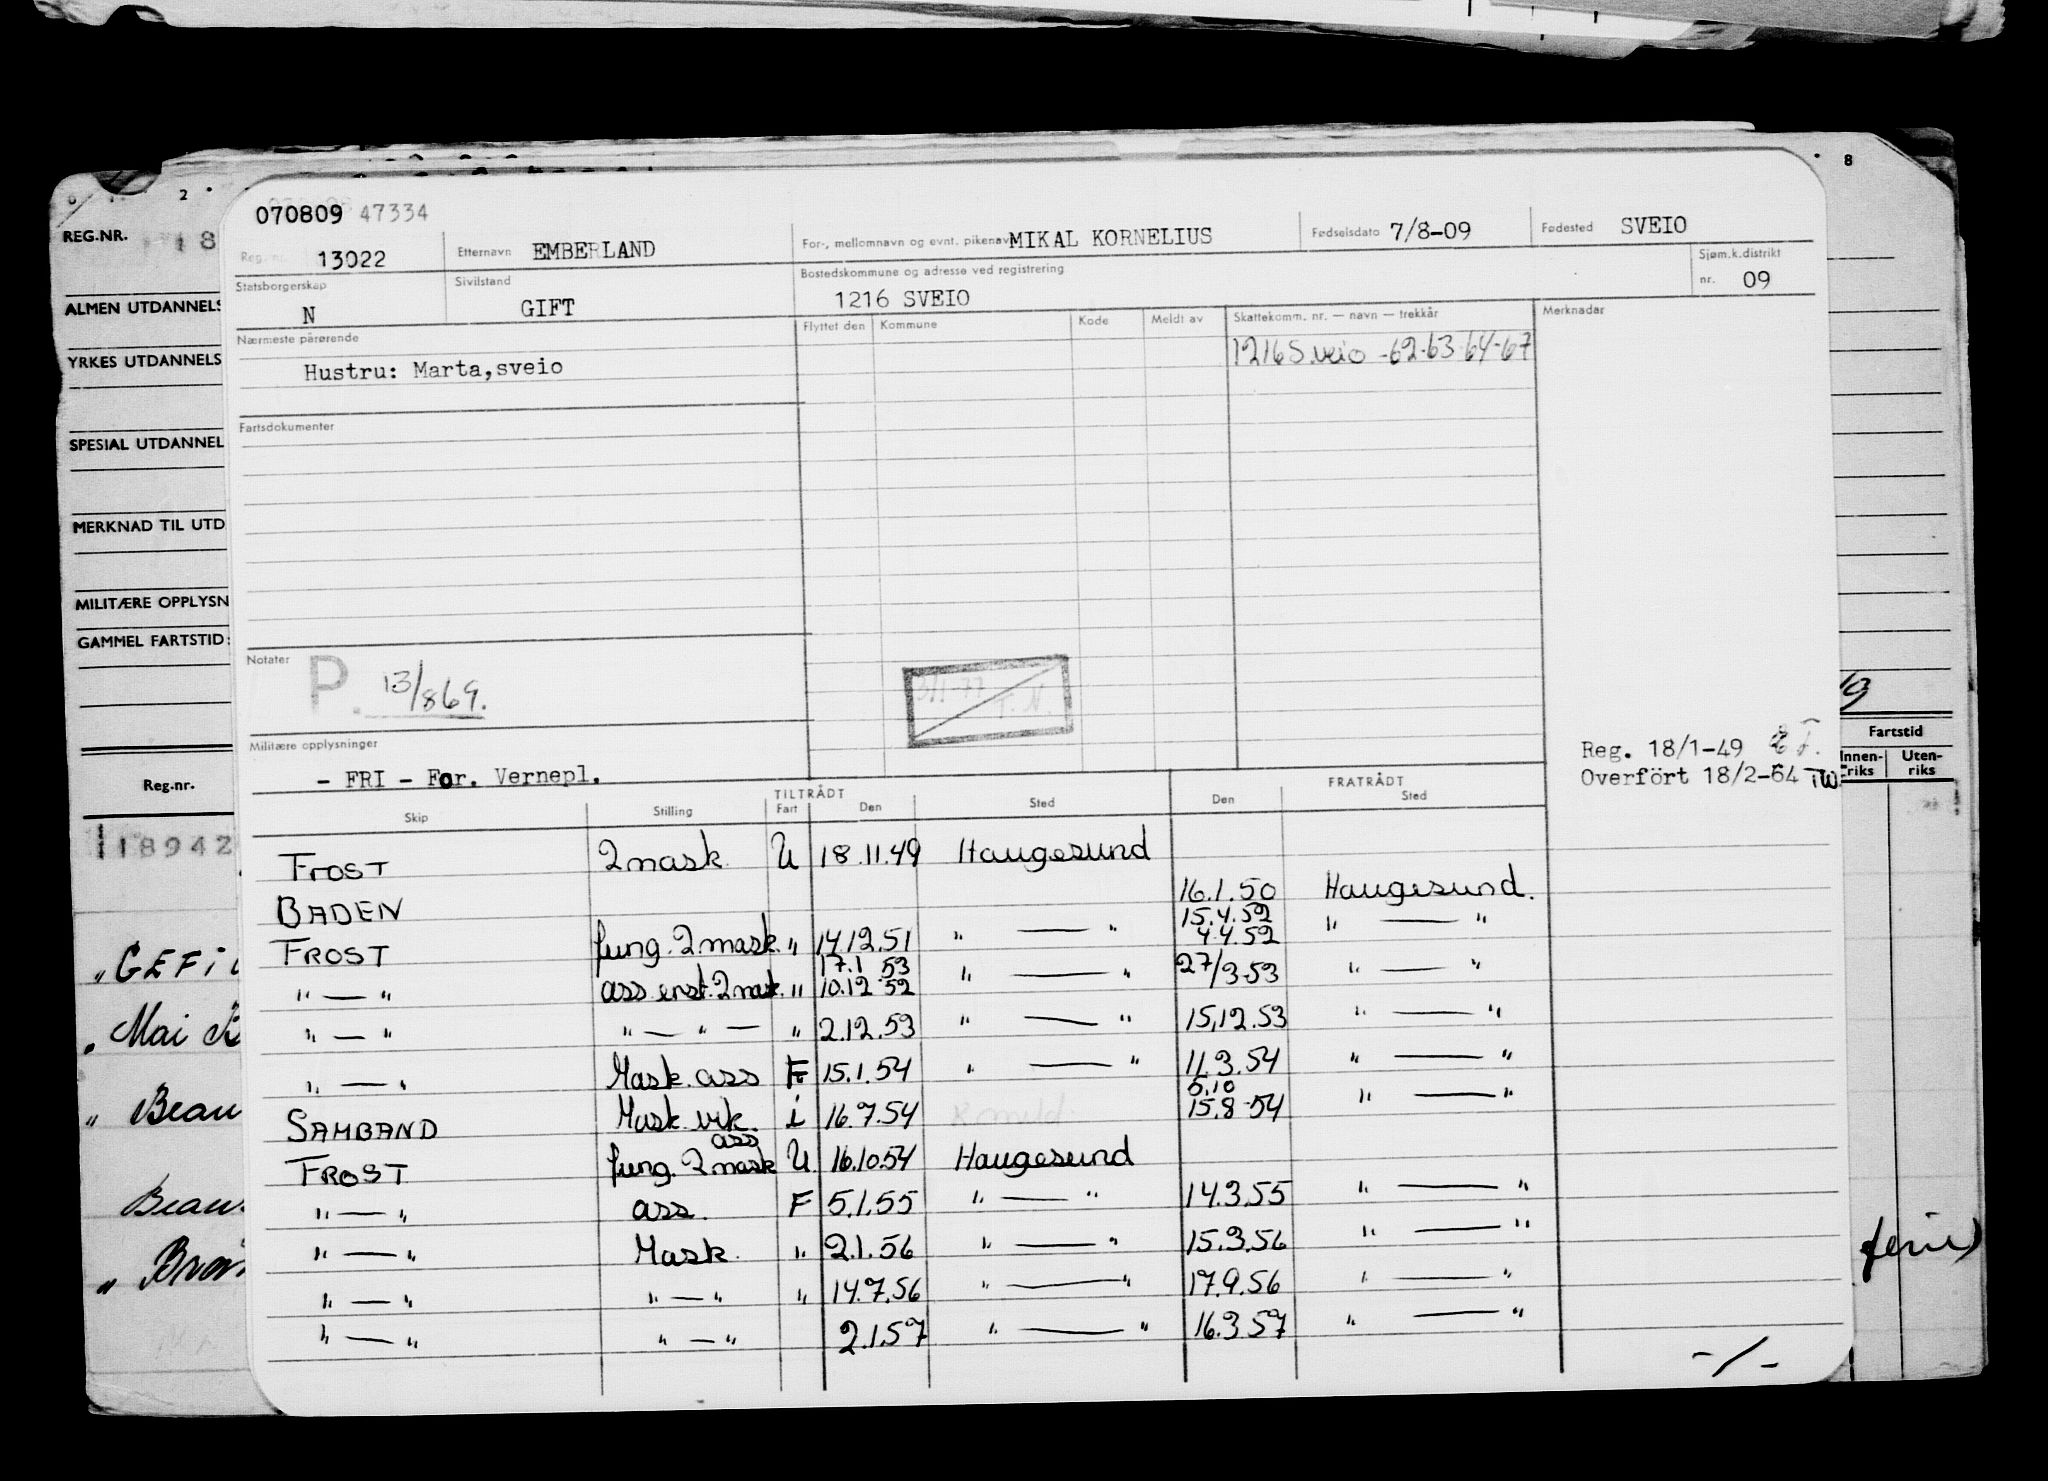 070809 47334
Reg. nr. 13022 Etternavn EMBERLAND For-, mellomnavn og evnt. pikenavn MIKAL KORNELIUS Fødselsdato 7/8-09 Fødested SVEIO
Statsborgerskap N Sivilstand GIFT Bostedskommune og adresse ved registrering 1216 SVEIO Sjøm.k.distrikt nr. 09
Nærmeste pårørende Flyttet den Kommune Kode Meldt av Skattekomm. nr. — navn — trekkår Merknader
Hustru: Marta,sveio 1216 Sveio -62-63-64-67
Fartsdokumenter
Notater P. 13/869.
3/1-77 T.N.
Militære opplysninger
- FRI - For. Vernepl.
Reg. 18/1-49
Overfört 18/2-64 TW
TILTRÅDT FRATRÅDT
Skip Stilling Fart Den Sted Den Sted
FROST 2 mask. U 18.11.49 Haugesund
BADEN 16.1.50 Haugesund.
15.4.52 " — "
FROST fung. 2 mask. " 14.12.51 " — " 4.4.52
17.1 53
" — " ass enst. 2 mask. " 10.12 52 " — " 27/3-53 " — "
" — " " — " — " 2.12.53 " — " 15.12.53 " — "
" — " Mask. ass F 15.1.54 " — " 11.3.54 " — "
5.10
SAMBAND Mask. vik. i 16.7.54 15.8-54 " — "
ass
FROST fung. 2 mask U 16.10.54 Haugesund
" — " ass. F 5.1.55 " — " 14.3.55 " — "
" — " Mask. " 2.1.56 " — " 15.3.56 " — "
" — " " — " " 14.7.56 " — " 17.9.56 " — "
" — " " — " 2.1.57 " — " 16.3.57 " — "
-/-
2
8
REG.NR. 18
ALMEN UTDANNELS
YRKES UTDANNELS
SPESIAL UTDANNEL
MERKNAD TIL UTD
MILITÆRE OPPLYSN
GAMMEL FARTSTID:
Reg.nr.
18942
" GEFI
" Mai
" Beau
Beau
"
Fartstid
Innenriks Utenriks